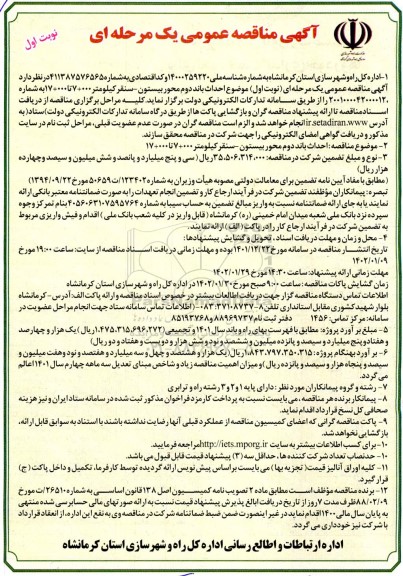 آگهی مناقصه عمومی یک مرحله ای
نوبت اول
۱- اداره کل راه و شهرسازی استان کرمانشاه به شماره شناسه ملی ۱۴۰۰۰۲۵۹۲۲۰ و کد اقتصادی به شماره ۴۱۱۳۸۷۵۷۶۵۶۵ در نظر دارد
آگهی مناقصه عمومی یک مرحله ای (نوبت اول) موضوع احداث باند دوم محور بیستون - سنقر کیلومتر ۷۰۰۰+۰ تا ۱۷۰۰۰+۰ به شماره
۲۰۰۱۰۰۰۰۴۲۰۰۰۱۲۰ را از طریق سامانه تدارکات الکترونیکی دولت برگزار نماید. کلیه مراحل برگزاری مناقصه از دریافت
اسناد مناقصه تا ارائه پیشنهاد مناقصه گران و بازگشایی پاکت ها از طریق درگاه سامانه تدارکات الکترونیکی دولت (ستاد) به
آدرس ir.setadiran.www انجام خواهد شد و لازم است مناقصه گران در صورت عدم عضویت قبلی، مراحل ثبت نام در سایت
مذکور و دریافت گواهی امضای الکترونیکی را جهت شرکت در مناقصه محقق سازند.
۲- موضوع مناقصه: احداث باند دوم محور بیستون - سنقر کیلومتر ۷۰۰۰+۰ تا ۱۷۰۰۰+۰
۳- نوع و مبلغ تضمین شرکت در مناقصه: ۳۵.۵۰۶.۳۱۴.۰۰۰ ریال (سی و پنج میلیارد و پانصد و شش میلیون و سیصد و چهارده
هزار ریال)
(مطابق با مفاد آیین نامه تضمین برای معاملات دولتی مصوبه هیأت وزیران به شماره ۱۲۳۴۰۲/ت ۵۰۶۵۹ مورخ ۱۳۹۴/۰۹/۲۲)
تبصره: پیمانکاران مؤظفند تضمین شرکت در فرآیند ارجاع کار و تضمین انجام تعهدات را به صورت ضمانتنامه معتبر بانکی ارائه
نمایند یا به جای ارائه ضمانتنامه نسبت به واریز مبالغ تضمین به حساب سیبا به شماره ۴۰۵۶۶۳۱۰۷۵۹۵۷۶۴ بنام تمرکز وجوه
سپرده نزد بانک ملی شعبه میدان امام خمینی (ره) کرمانشاه (قابل واریز در کلیه شعب بانک ملی) اقدام و فیش واریزی مربوط
به تضمین شرکت در فرآیند ارجاع کار را در پاکت (الف) ارائه نمایند.
۴- محل و زمان و مهلت دریافت اسناد، تحویل و گشایش پیشنهادها:
تاریخ انتشار مناقصه در سامانه مورخ ۱۴۰۱/۱۲/۲۳ بوده و مهلت زمانی دریافت اسناد مناقصه از سایت: ساعت ۱۹:۰۰ مورخ
۱۴۰۲/۰۱/۰۹
مهلت زمانی ارائه پیشنهاد: ساعت ۱۴:۳۰ مورخ ۱۴۰۲/۰۱/۲۹
زمان گشایش پاکات مناقصه: ساعت ۹:۰۰ صبح مورخ ۱۴۰۲/۰۱/۳۰ در اداره کل راه و شهرسازی استان کرمانشاه
اطلاعات تماس دستگاه مناقصه گزار جهت دریافت اطلاعات بیشتر در خصوص اسناد مناقصه و ارائه پاکت الف: آدرس - کرمانشاه
بلوار شهید کشوری مقابل استانداری تلفن ۸-۳۷۱۰۸۷۳۷-۰۸۳ - (اطلاعات تماس سامانه ستاد جهت انجام مراحل عضویت در
سامانه: مرکز تماس: ۱۴۵۶ دفتر ثبت نام ۸۸۹۶۹۷۳۷ و ۸۵۱۹۳۷۶۸
۵- مبلغ برآورد پروژه: مطابق با فهرست بهای راه و باند سال ۱۴۰۱ و تجمیعی (۱.۴۷۵.۳۱۵.۶۹۶.۲۷۲) ریال (یک هزار و چهارصد
و هفتاد و پنج میلیارد و سیصد و پانزده میلیون و ششصد و نود و شش هزار و دویست و هفتاد و دو ریال)
۶- برآورد بهنگام پروژه: (۱.۸۴۳.۷۹۷.۳۵۰.۳۱۵) ریال (یک هزار و هشتصد و چهل و سه میلیارد و هفتصد و نود و هفت میلیون و
سیصد و پنجاه هزار و سیصد و پانزده ریال) و میزان اهمیت مناقصه زیاد و شاخص مبنای تعدیل سه ماهه چهارم سال ۱۴۰۱ اعالم
می گردد.
۷- رشته و گروه پیمانکاران مورد نظر: دارای پایه ۱ و ۲ و ۳ رشته راه و ترابری
۸- پیمانکار برنده هر مناقصه، می بایست نسبت به پرداخت کارمزد فراخوان مذکور ثبت شده در سامانه ستاد ایران و نیز هزینه
صحافی کل نسخ قرارداد اقدام نماید.
۹- پاکت مناقصه گرانی که اعضای کمیسیون مناقصه از عملکرد قبلی آنها رضایت نداشته باشند با استناد به سوابق قابل ارائه،
بازگشایی نخواهد شد.
۱۰- برای کسب اطلاعات بیشتر به سایت http://iets.mporg.ir مراجعه فرمایید.
۱۰- حدنصاب تعداد شرکت کننده ها، حداقل سه (۳) پیشنهاد قیمت قابل قبول می باشد.
۱۱- کلیه اوراق آنالیز قیمت (تجزیه بها) می بایست بر اساس پیش نویس ارائه گردیده توسط کارفرما، تکمیل و داخل پاکت (ج)
قرار گیرد.
۱۲- برنده مناقصه مؤظف است مطابق ماده ۲ تصویب نامه کمیسیون اصل ۱۳۸ قانون اساسی به شماره ۲۶۵۱۰/ت مورخ
۸۸/۰۲/۰۹ ظرف مدت ۷ روز از تاریخ دریافت ابالغ پذیرش پیشنهاد قیمت نسبت به ارائه صورتهای مالی حسابرسی شده منتهی
به پایان سال مالی ۱۴۰۰ اقدام نماید در غیر اینصورت ضمن ضبط ضمانتنامه شرکت در مناقصه وی به نفع این اداره، از انعقاد قرارداد
با شرکت نیز خودداری می گردد.
اداره ارتباطات و اطالع رسانی اداره کل راه و شهرسازی استان کرمانشاه